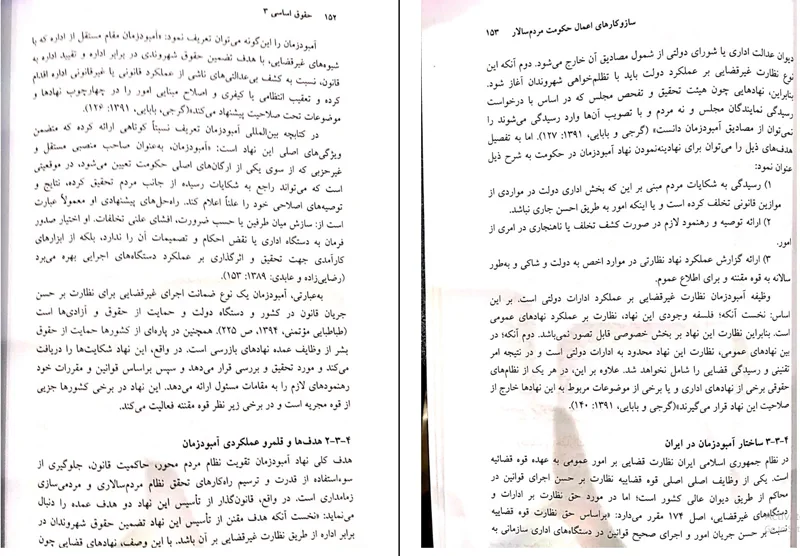 ۱۵۲ حقوق اساسی ۳
آمبودزمان را این‌گونه می‌توان تعریف نمود: «آمبودزمان مقام مستقل از اداره که با
شیوه‌های غیرقضایی، با هدف تضمین حقوق شهروندی در برابر اداره و تقیید اداره به
قانون، نسبت به کشف بی‌عدالتی‌های ناشی از عملکرد قانونی یا غیرقانونی اداره اقدام
کرده و تعقیب انتظامی یا کیفری و اصلاح مبنایی امور را در چهارچوب نهادها و
موضوعات تحت صلاحیت پیشنهاد می‌کند»(گرجی، بابایی، ۱۳۹۱: ۱۲۶).
در کتابچه بین‌المللی آمبودزمان تعریف نسبتاً کوتاهی ارائه کرده که متضمن
ویژگی‌های اصلی این نهاد است: «آمبودزمان، به‌عنوان صاحب منصبی مستقل و
غیرحزبی که از سوی یکی از ارگان‌های اصلی حکومت تعیین می‌شود، در موقعیتی
است که می‌تواند راجع به شکایات رسیده از جانب مردم تحقیق کرده، نتایج و
توصیه‌های اصلاحی خود را علناً اعلام کند. راه‌حل‌های پیشنهادی او معمولاً عبارت
است از: سازش میان طرفین یا حسب ضرورت، افشای علنی تخلفات. او اختیار صدور
فرمان به دستگاه اداری یا نقض احکام و تصمیمات آن را ندارد، بلکه از ابزارهای
کارآمدی جهت تحقیق و اثرگذاری بر عملکرد دستگاه‌های اجرایی بهره می‌برد
(رضایی‌زاده و عابدی: ۱۳۸۹: ۱۵۳).
به‌عبارتی، آمبودزمان یک نوع ضمانت اجرای غیرقضایی برای نظارت بر حسن
جریان قانون در کشور و دستگاه دولت و حمایت از حقوق و آزادی‌ها است
(طباطبایی مؤتمنی، ۱۳۹۴، ص ۲۲۵). همچنین در پاره‌ای از کشورها حمایت از حقوق
بشر از وظایف عمده نهادهای بازرسی است. در واقع، این نهاد شکایت‌ها را دریافت
می‌کند و مورد تحقیق و بررسی قرار می‌دهد و سپس براساس قوانین و مقررات خود
رهنمودهای لازم را به مقامات مسئول ارائه می‌دهد. این نهاد در برخی کشورها جزیی
از قوه مجریه است و در برخی زیر نظر قوه مقننه فعالیت می‌کند.
۴-۳-۲ هدف‌ها و قلمرو عملکردی آمبودزمان
هدف کلی نهاد آمبودزمان تقویت نظام مردم محور، حاکمیت قانون، جلوگیری از
سوءاستفاده از قدرت و ترسیم راه‌کارهای تحقق نظام مردم‌سالاری و مردمی‌سازی
زمامداری است. در واقع، قانون‌گذار از تأسیس این نهاد دو هدف عمده را دنبال
می‌نماید: «نخست آنکه هدف مقنن از تأسیس این نهاد تضمین حقوق شهروندان در
برابر اداره از طریق نظارت غیرقضایی بر آن باشد. با این وصف، نهادهای قضایی چون
سازوکارهای اعمال حکومت مردم‌سالار ۱۵۳
دیوان عدالت اداری یا شورای دولتی از شمول مصادیق آن خارج می‌شود. دوم آنکه این
نوع نظارت غیرقضایی بر عملکرد دولت باید با تظلم‌خواهی شهروندان آغاز شود.
بنابراین، نهادهایی چون هیئت تحقیق و تفحص مجلس که در اساس با درخواست
نمایندگان مجلس و نه مردم و با تصویب آن‌ها وارد رسیدگی می‌شوند را
نمی‌توان از مصادیق آمبودزمان دانست» (گرجی و بابایی، ۱۳۹۱: ۱۲۷). اما به تفصیل
هدف‌های ذیل را می‌توان برای نهادینه‌نمودن نهاد آمبودزمان در حکومت به شرح ذیل
عنوان نمود:
۱) رسیدگی به شکایات مردم مبنی بر این که بخش اداری دولت در مواردی از
موازین قانونی تخلف کرده است و یا اینکه امور به طریق احسن جاری نباشد.
۲) ارائه توصیه و رهنمود لازم در صورت کشف تخلف یا ناهنجاری در امری از
امور.
۳) ارائه گزارش عملکرد نهاد نظارتی در موارد اخص به دولت و شاکی و به‌طور
سالانه به قوه مقننه و برای اطلاع عموم.
وظیفه آمبودزمان نظارت غیرقضایی بر عملکرد ادارات دولتی است. بر این
اساس: نخست آنکه؛ فلسفه وجودی این نهاد، نظارت بر عملکرد نهادهای عمومی
است. بنابراین نظارت این نهاد بر بخش خصوصی قابل تصور نمی‌باشد. دوم آنکه؛ در
بین نهادهای عمومی، نظارت این نهاد محدود به ادارات دولتی است و در نتیجه امر
تقنینی و رسیدگی قضایی را شامل نخواهد شد. علاوه بر این، در هر یک از نظام‌های
حقوقی برخی از نهادهای اداری و یا برخی از موضوعات مربوط به این نهادها خارج از
صلاحیت این نهاد قرار می‌گیرند»(گرجی و بابایی، ۱۳۹۱: ۱۴۰).
۴-۳-۳ ساختار آمبودزمان در ایران
در نظام جمهوری اسلامی ایران نظارت قضایی بر امور عمومی به عهده قوه قضائیه
است. یکی از وظایف اصلی اصلی قوه قضاییه نظارت بر حسن اجرای قوانین در
محاکم از طریق دیوان عالی کشور است؛ اما در مورد حق نظارت بر ادارات و
دستگاه‌های غیرقضایی، اصل ۱۷۴ مقرر می‌دارد: «براساس حق نظارت قوه قضاییه
نسبت بر حسن جریان امور و اجرای صحیح قوانین در دستگاه‌های اداری سازمانی به